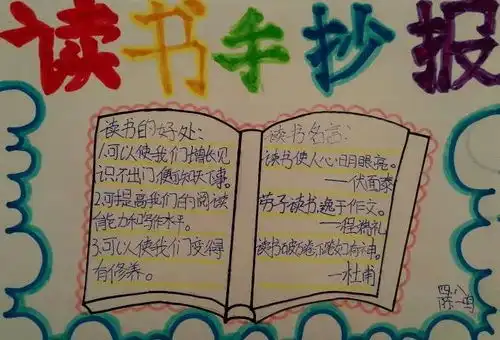 读书手抄报
读书的好处:
1.可以使我们增长见
识不出门便知天下事。
2.可提高我们的阅读
能力和写作水平。
3.可以使我们变得
有修养。
读书名言:
读书使人心明眼亮。
——伏尔泰
劳于读书,逸于作文。
——程端礼
读书破万卷,下笔如有神。
—杜甫
四.八
陈一鸣